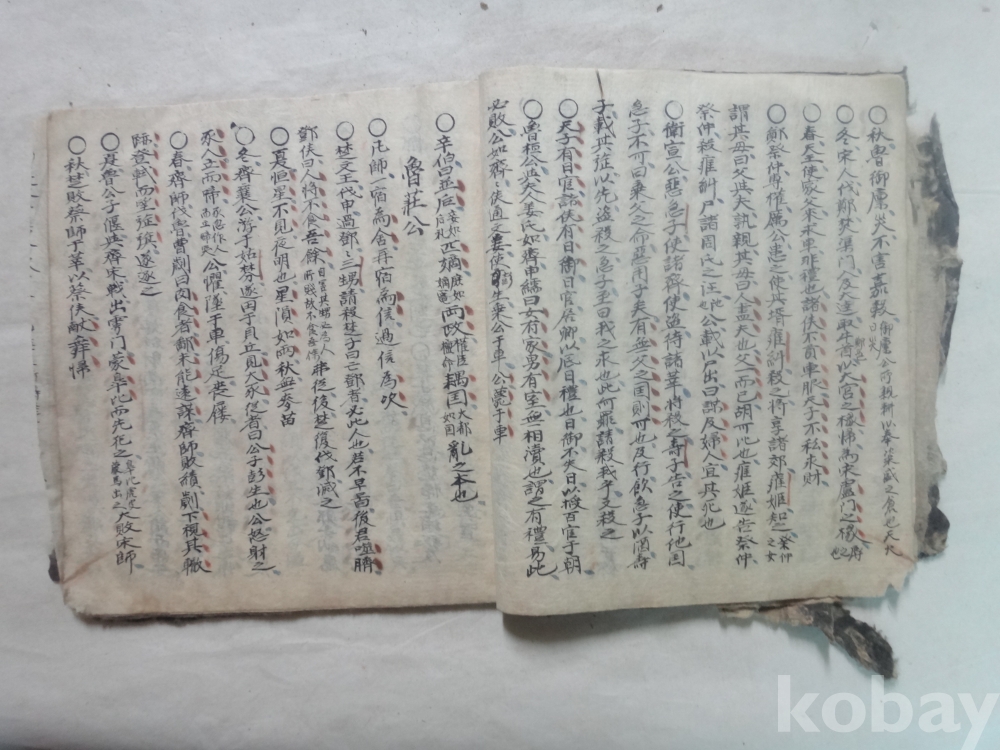 ○秋魯御廩災不害嘉穀
○冬宋人伐鄭焚渠門入及大逵取牛首以大宮之椽歸爲宋盧門之椽
○春天王使家父來求車非禮也諸侯不貢車服天子不私求財
○鄭祭仲專權厲公患之使其壻雍糾殺之將享諸郊雍姬知之
謂其母曰父與夫孰親其母曰人盡夫也父一而已胡可比也雍姬遂告祭仲
祭仲殺雍糾尸諸周氏之汪公載以出曰謀及婦人宜其死也
○衛宣公 急子使諸齊使盜待諸莘將殺之壽子告之使行他國
急子不可曰棄父之命惡用子矣有無父之國則可也及行飲急子以酒壽
子載其旌以先盜殺之急子至曰我之求也此何罪請殺我乎又殺之
○天子有日官諸侯有日御日官居卿以底日禮也日御不失日以授百官于朝
○魯桓公與夫人姜氏如齊申繻曰女有家男有室無相瀆也謂之有禮易此
必敗公如齊齊侯通文姜使彭生乘公公薨于車
○辛伯曰並后匹嫡兩政耦國亂之本也
魯莊公
○凡師一宿爲舍再宿爲信過信爲次
○楚文王伐申過鄧三甥請殺楚子曰亡鄧者必此人也若不早圖後君噬臍
鄧侯曰人將不食吾餘弗從後楚復伐鄧滅之
○夏恒星不見夜明也星隕如雨秋無麥苗
○冬齊襄公游于姑棼遂田于貝丘見大豕從者曰公子彭生也公怒射之
豕人立而啼公懼墜于車傷足喪屨
○春齊師伐魯曹劌曰肉食者鄙未能遠謀齊師敗績劌下視其轍
跡登軾而望旌旗遂逐之
○夏魯公子偃與齊宋戰出雩門蒙皐比而先犯之大敗宋師
○秋楚敗蔡師于莘以蔡侯獻舞歸
kobay